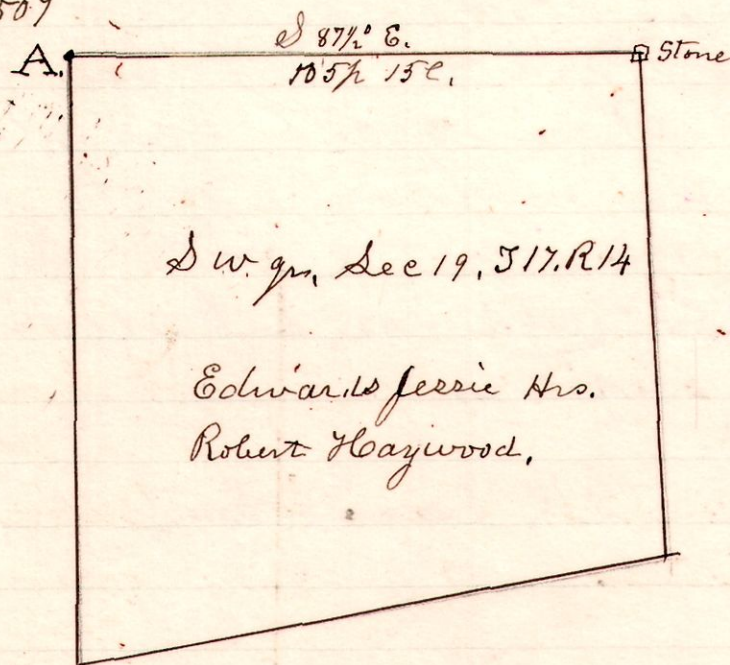 509
S 87½° E.
A.
Stone
105p 15l.
S W. qr. Sec 19, T17. R14
Edwards Jessie Hrs.
Robert Haywood,